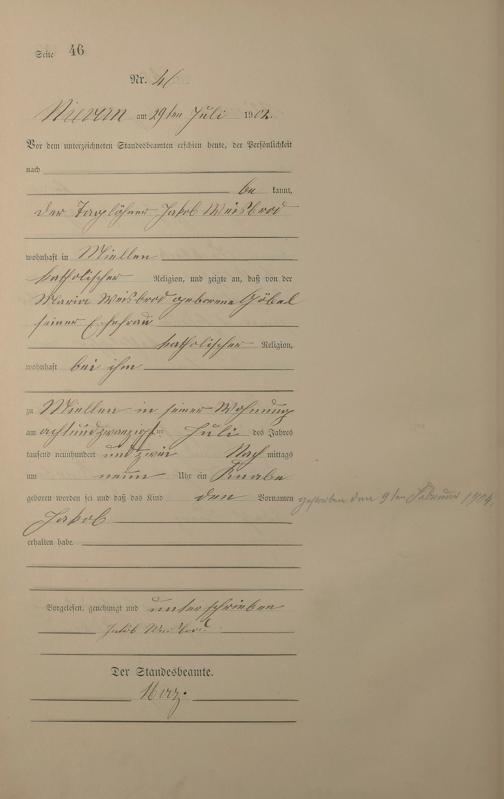 Seite 46
Nr. 46
Nievern am 29ten Juli 1902.
Vor dem unterzeichneten Standesbeamten erschien heute, der Persönlichkeit
nach
be kannt,
der Taglöhner Jakob Weisbrod
wohnhaft in Miellen
katholischer Religion, und zeigte an, daß von der
Maria Weisbrod geborene Göbel
seiner Ehefrau
katholischer Religion,
wohnhaft bei ihm
zu Miellen in seiner Wohnung
am achtundzwanzigsten Juli des Jahres
tausend neunhundert und zwei Nach mittags
um neun Uhr ein Knabe
geboren worden sei und daß das Kind den Vornamen
gestorben den 9ten Februar 1904.
Jakob
erhalten habe.
Vorgelesen, genehmigt und unterschrieben
Jakob Weisbrod
Der Standesbeamte.